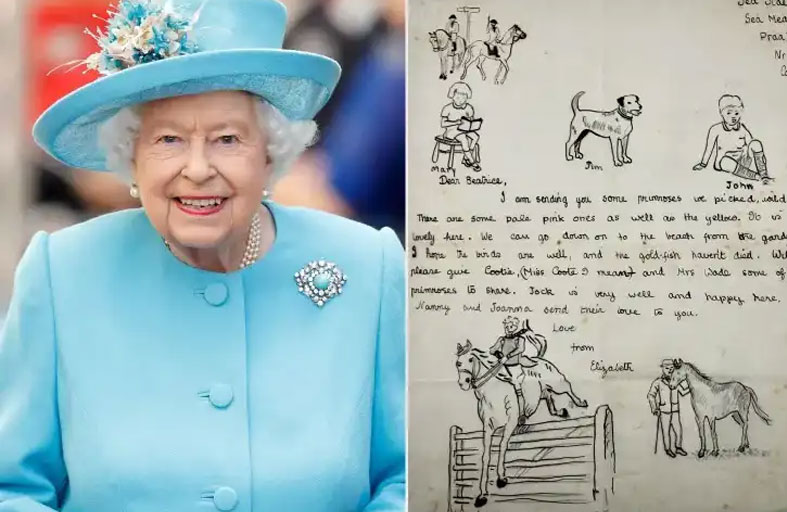 Sea
Sea Mea
Praa
Nr
Mary
Jim
John
Dear Beatrice,
I am sending you some primroses we picked,
There are some pale pink ones as well as the yellow. It is
lovely here. We can go down on to the beach from the gard
I hope the birds are well, and the gold-fish haven't died. Wi
please give Cootie, (Miss Coote I mean) and Mrs Wade some of
primroses to share. Jock is very well and happy here.
Nanny and Joanna send their love to you.
Love
from
Elizabeth